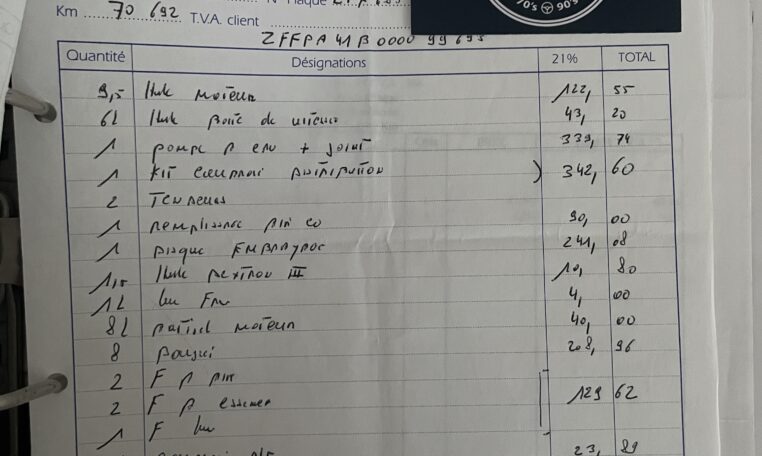 70's 90's
Km 70 692 T.V.A. client
ZFFPA41B0000 99695
Quantité Désignations 21% TOTAL
9,5 Huile moteur 122, 55
6l Huile boite de vitesse 43, 20
1 pompe a eau + joint 339, 74
1 KIT courroi distribution ) 342, 60
2 Tendeurs
1 remplissage air co 90, 00
1 disque EMBRAYAGE 241, 08
1,5 Huile dextron III 10, 80
1L 4, 00
8l moteur 40, 00
8 bougui 208, 96
2 F a air
2 F a essence 129 62
1 F
23, 89